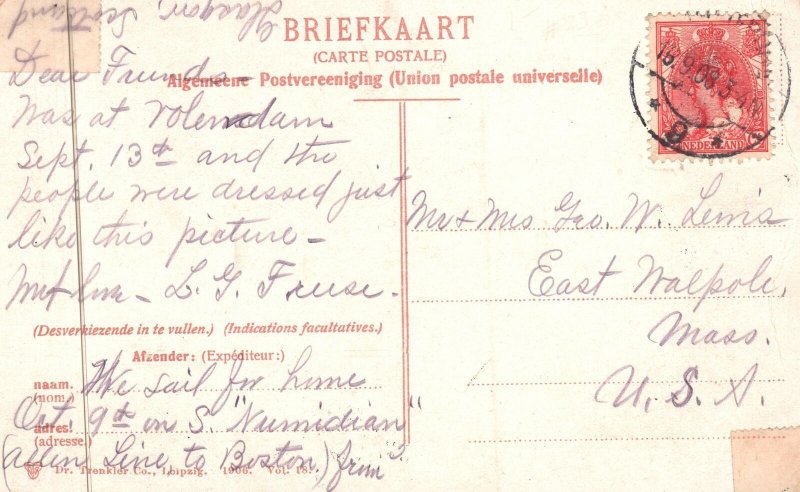 Glasgow, Scotland
BRIEFKAART
(CARTE POSTALE)
Algemeene Postvereeniging (Union postale universelle)
NEDERLAND
Dear Friends –
Was at Volendam
Sept. 13th and the
people were dressed just
like this picture –
L. G. Freese.
Mr & Mrs Geo. W. Lewis
East Walpole,
Mass.
U. S. A.
(Desverkiezende in te vullen.) (Indications facultatives.)
Afzender: (Expéditeur:)
naam.
(nom.)
adres!
(adresse.)
We sail for home
Oct. 9th on S. "Numidian"
(Allen Line to Boston) from
Dr. Trenkler Co., Leipzig. 1906. Vol. 18.